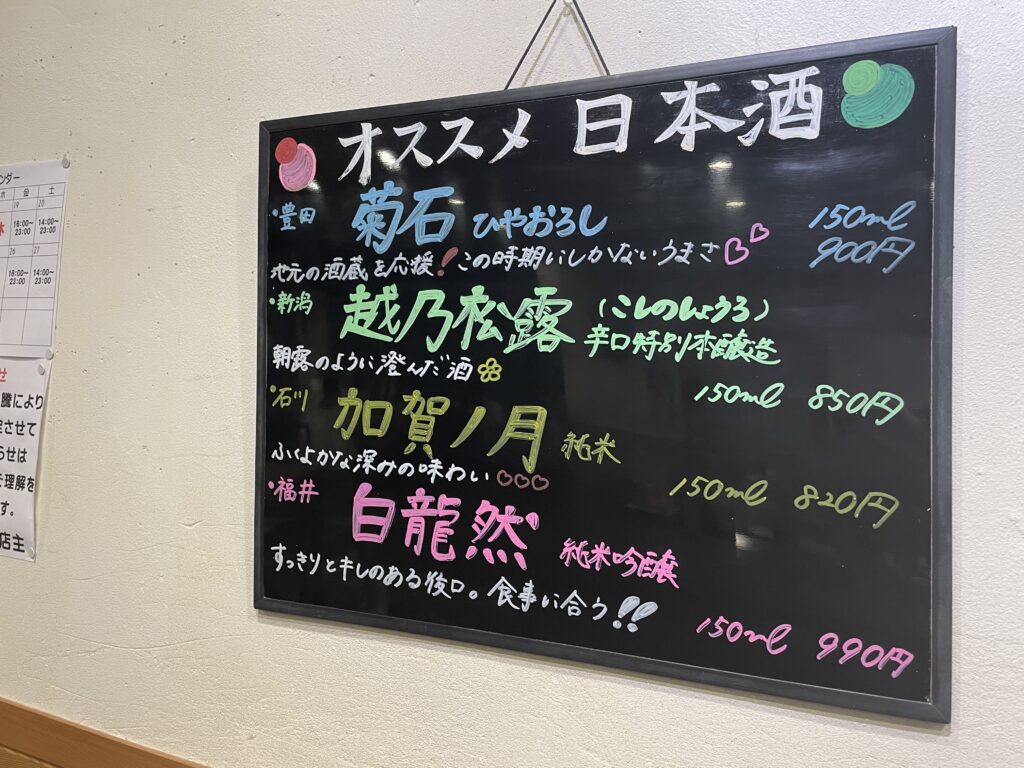 ンダー
木 金 土
19 20
休 16:00~ 14:00~
23:00 23:00
26 27
16:00~ 14:00~
23:00 23:00
せ
騰により
定させて
らせは
ご理解を
す。
店主
オススメ 日本酒
・豊田 菊石 ひやおろし 150ml
900円
地元の酒蔵を応援!この時期にしかないうまさ
・新潟 越乃松露 (こしのしょうろ)
辛口特別本醸造
朝露のように澄んだ酒 150ml 850円
・石川 加賀ノ月 純米
ふくよかな深みの味わい 150ml 820円
・福井 白龍然 純米吟醸
すっきりとキレのある後口。食事に合う!!
150ml 990円